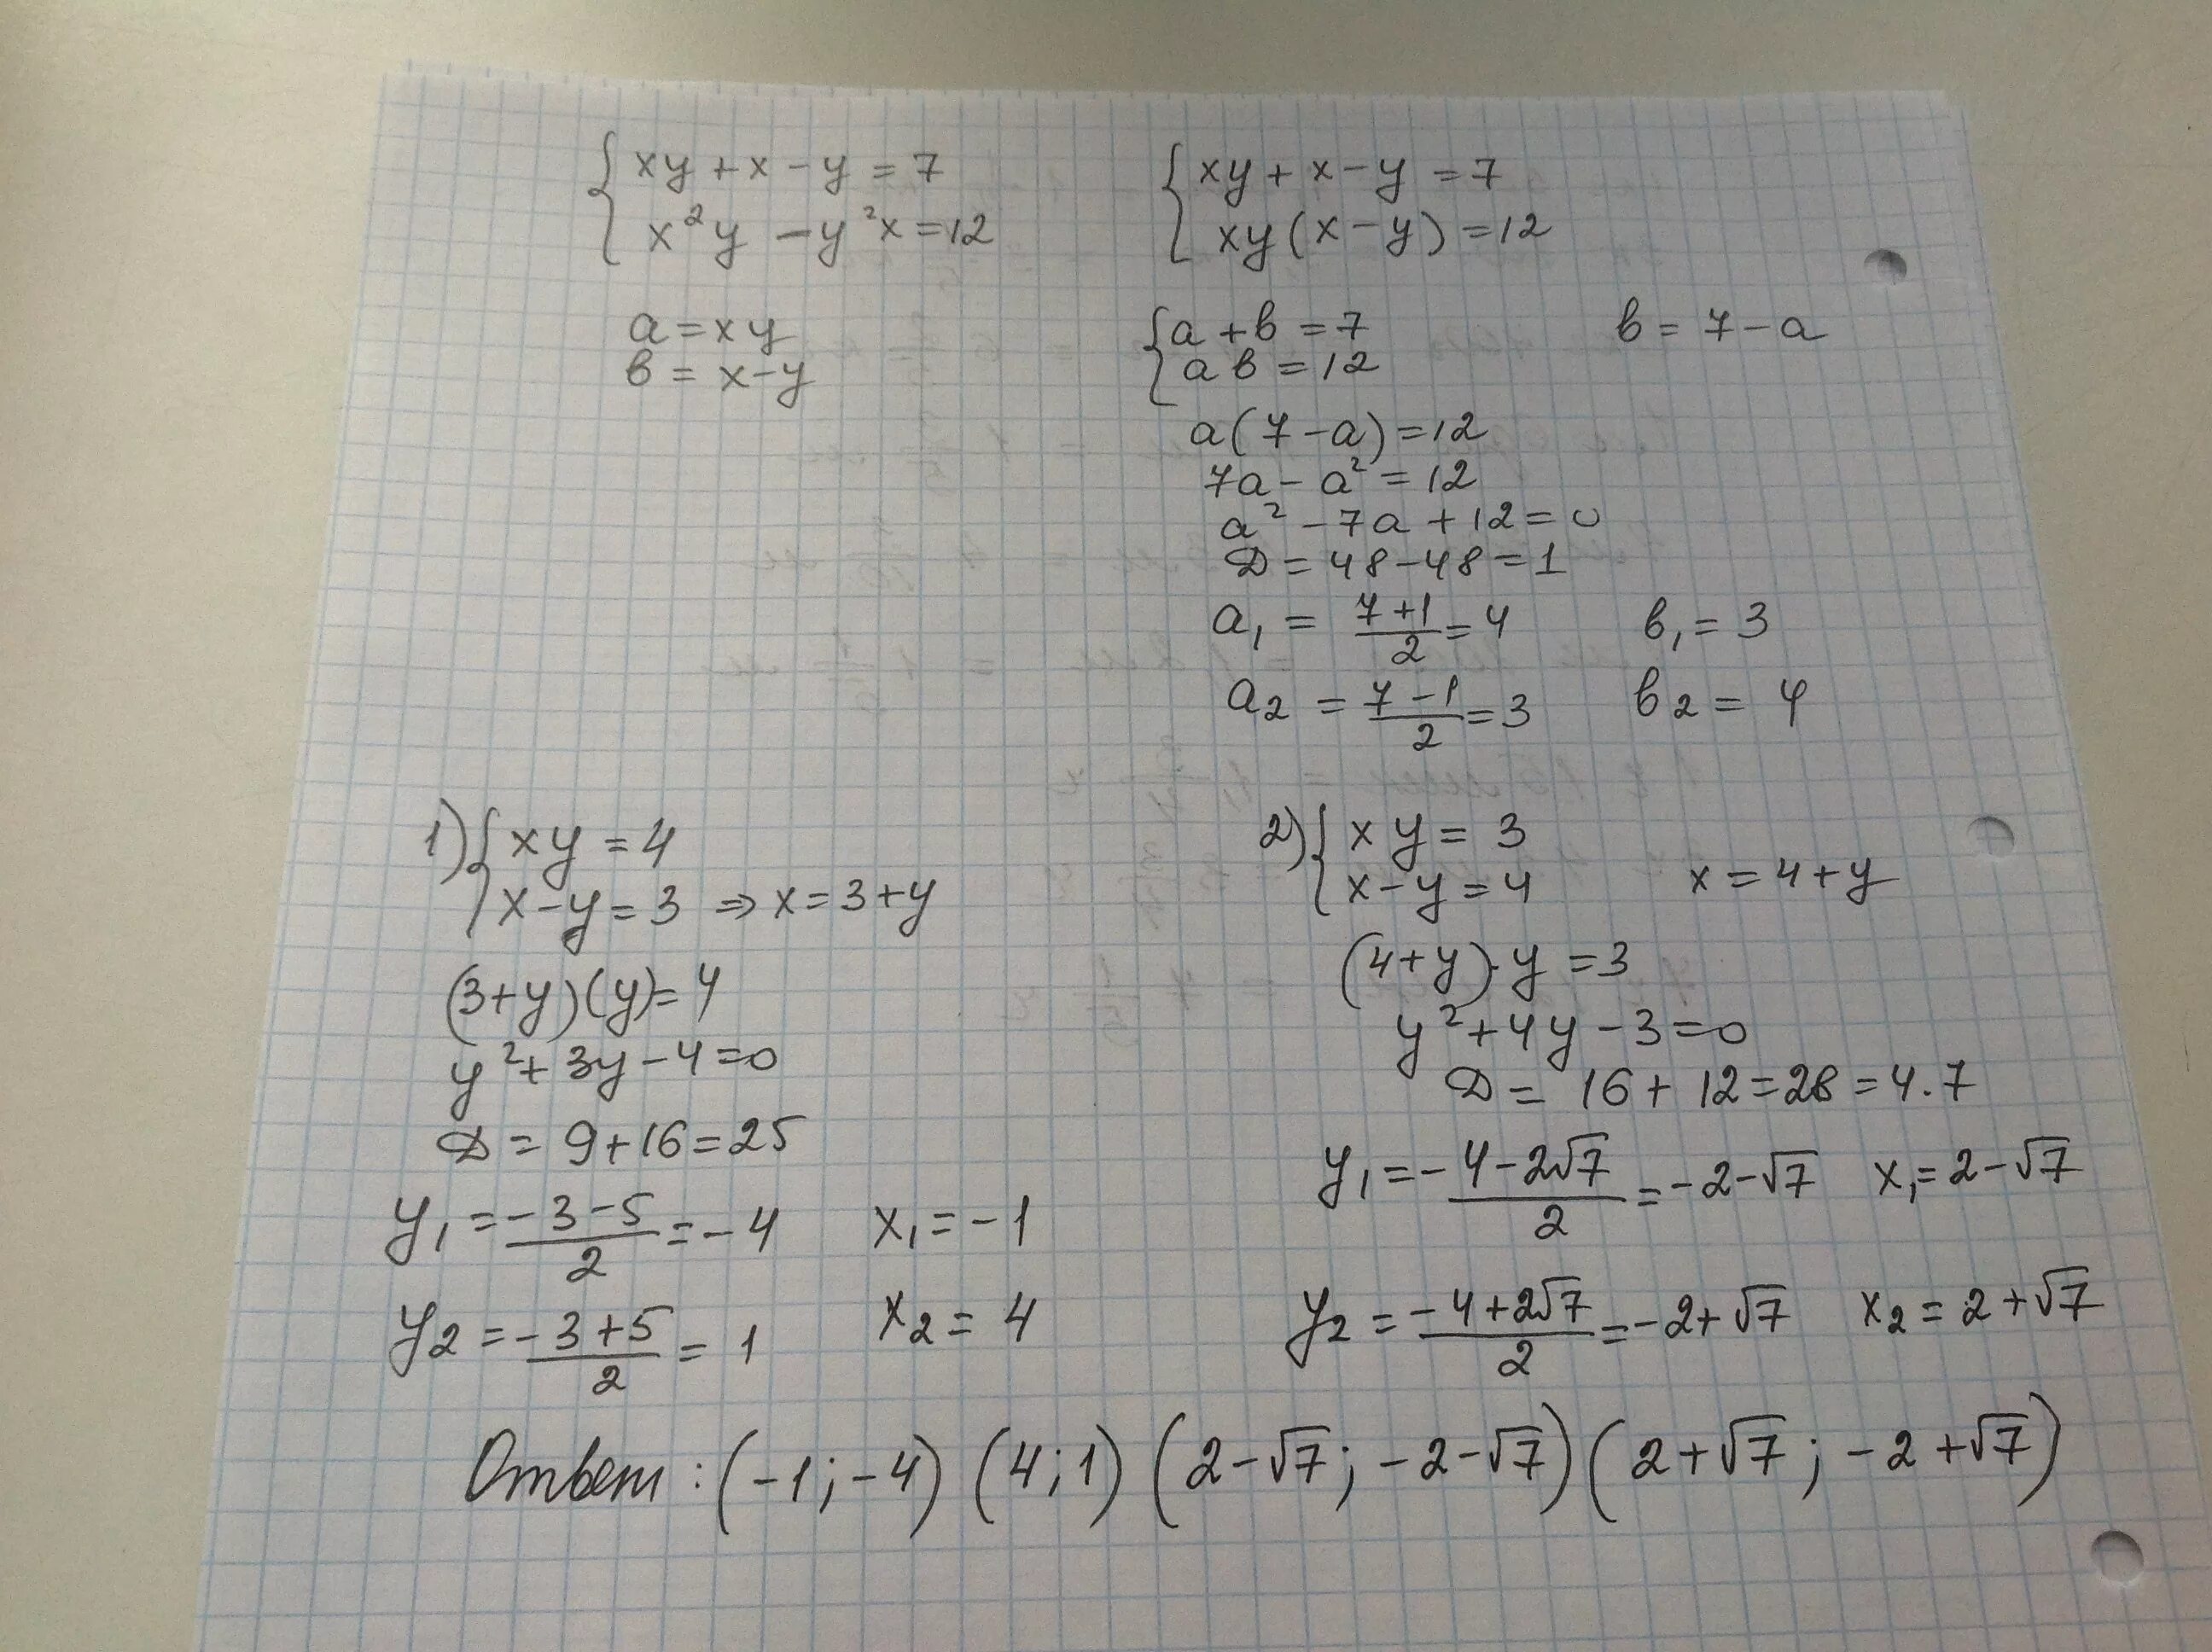 { xy + x - y = 7
x²y - y²x = 12
{ xy + x - y = 7
xy(x - y) = 12
a = xy
в = x - y
{ a + в = 7
aв = 12
в = 7 - a
a(7 - a) = 12
7a - a² = 12
a² - 7a + 12 = 0
D = 48 - 48 = 1
a₁ = (7 + 1)/2 = 4 в₁ = 3
a₂ = (7 - 1)/2 = 3 в₂ = 4
1) { xy = 4
x - y = 3 ⇒ x = 3 + y
(3 + y)(y) = 4
y² + 3y - 4 = 0
D = 9 + 16 = 25
y₁ = (-3 - 5)/2 = -4 x₁ = -1
y₂ = (-3 + 5)/2 = 1 x₂ = 4
2) { xy = 3
x - y = 4 x = 4 + y
(4 + y)·y = 3
y² + 4y - 3 = 0
D = 16 + 12 = 28 = 4·7
y₁ = (-4 - 2√7)/2 = -2 - √7 x₁ = 2 - √7
y₂ = (-4 + 2√7)/2 = -2 + √7 x₂ = 2 + √7
Ответ: (-1; -4) (4; 1) (2 - √7; -2 - √7) (2 + √7; -2 + √7)